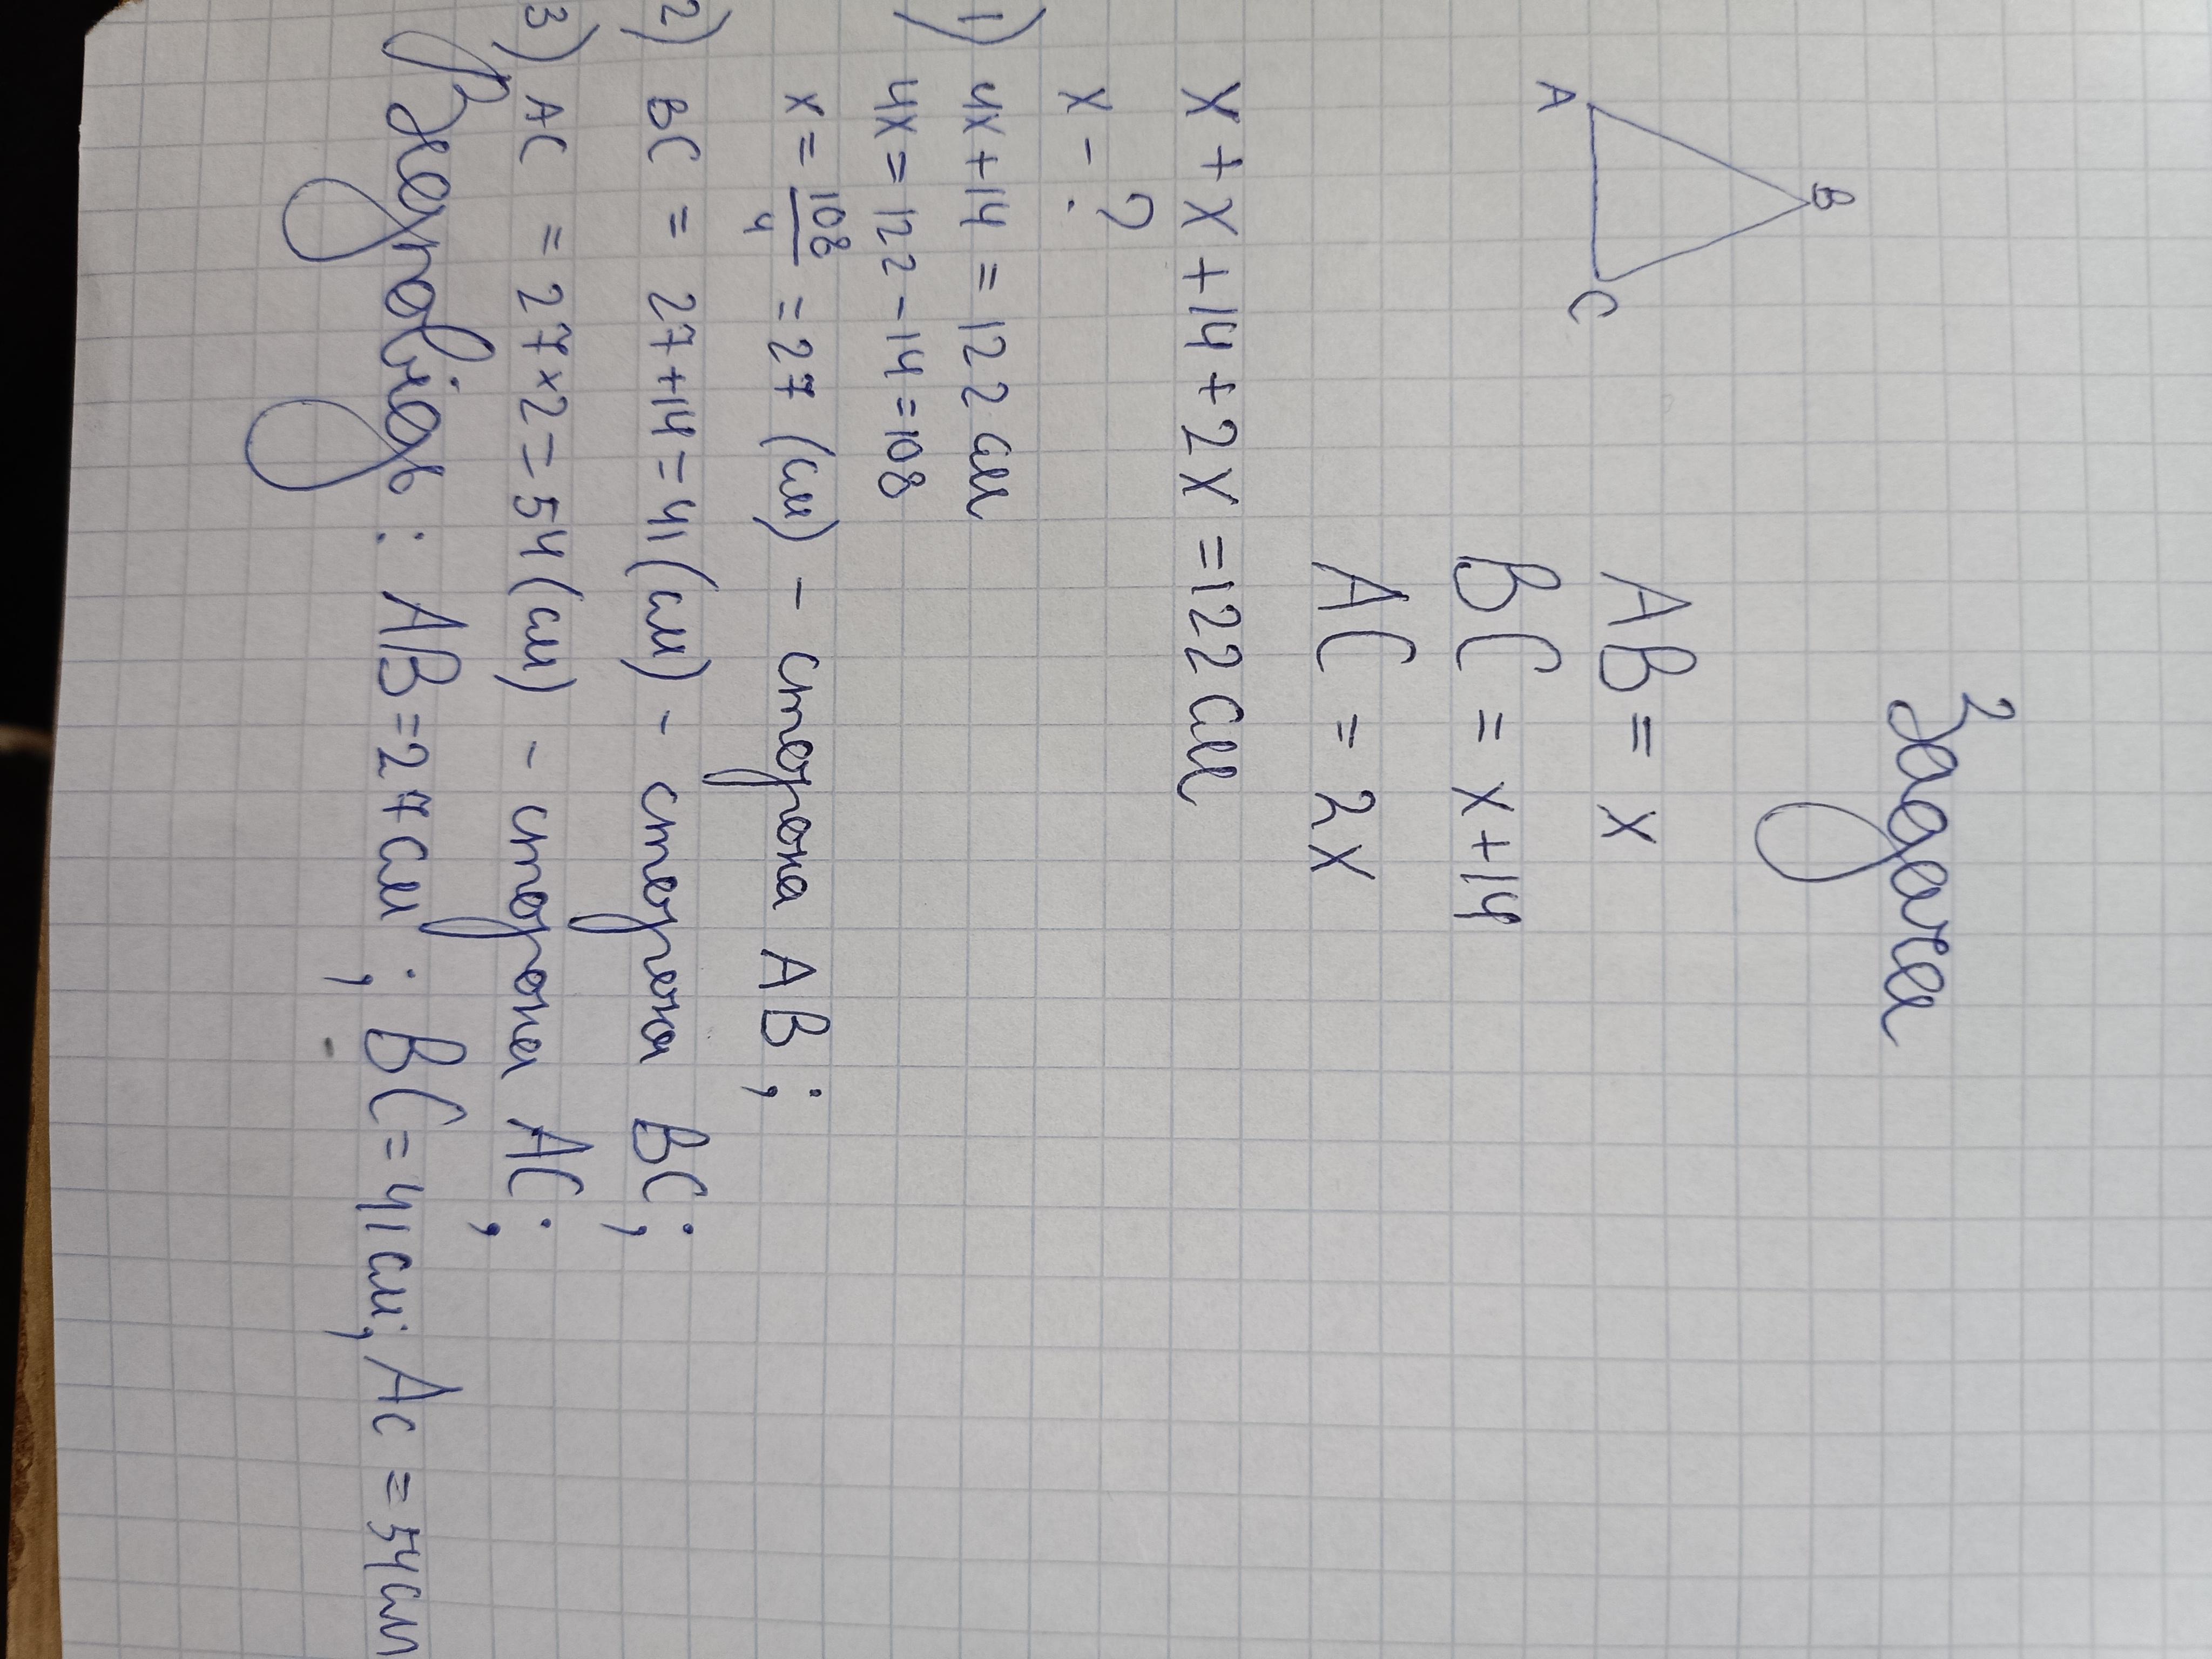 Задача
B
A
C
AB = x
BC = x+14
AC = 2x
x + x + 14 + 2x = 122 см
x - ?
1) 4x + 14 = 122 см
4x = 122 - 14 = 108
x = 108/4 = 27 (см) - сторона AB;
2) BC = 27 + 14 = 41 (см) - сторона BC;
3) AC = 27 × 2 = 54 (см) - сторона AC;
Відповідь: AB = 27 см; BC = 41 см; AC = 54 см